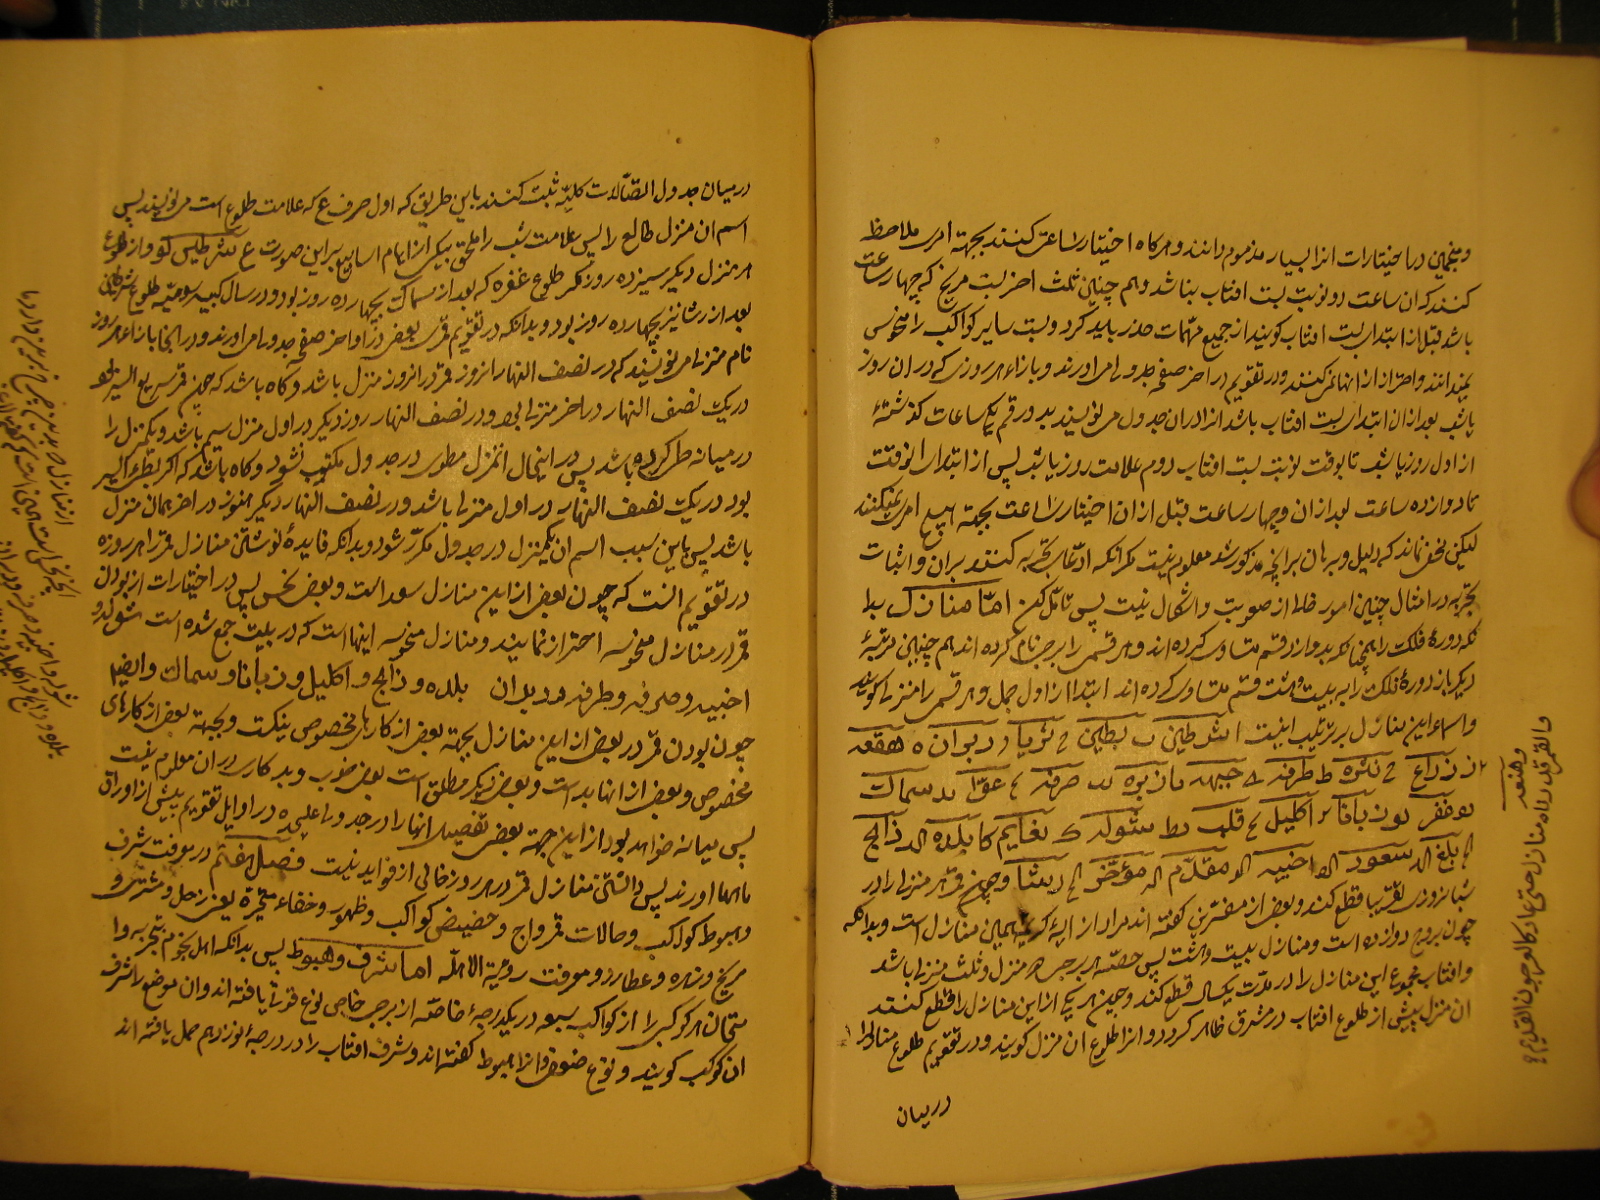 و منجمین در اختیارات انرا بسیار مذموم دانند و هرکاه اختیار ساعتی کنند بجهة امری ملاحظه
کنند که ان ساعت در نوبت بست افتاب نباشد و هم چنین ثلث اخر بست مریخ که چهار ساعت
باشد قبل از ابتدای بست افتاب کویند از جمیع مهمات حذر باید کرد و بست سایر کواکب را منحوس
نمیدانند و احتراز از انها نمیکنند و در تقویم در اخر صفحه جدولی می اورند و بازاء هر روزی که در ان روز
یا شب بعد از ان ابتدای بست افتاب باشد انرا در ان جدول می نویسند بد و رقم یکی ساعات کذشتهٔ
از اول روز یا شب تا بوقت نوبت بست افتاب دوم علامت روز یا شب پس از ابتدای انوقت
تا دوازده ساعت بعد از ان و چهار ساعت قبل از ان اختیار ساعت بجهة هیچ امری نمیکنند
لیکن مخفی نماند که دلیل و برهان بر انچه مذکور شد معلوم نیست مکر انکه ادعای تجربه کنند بر ان و اثبات
تجربه در امثال چنین امور خالی از صعوبت و اشکال نیست پس تامل کن اما منازل بدا
نکه دورهٔ فلک را همچنانکه بدوازده قسم متساوی کرده اند و هر قسمی را برجی نام کرده اند هم چنین مرتبهٔ
دیکر باز دورهٔ فلک را به بیست و هشت قسم متساوی کرده اند ابتدا از اول حمل و هر قسمی را منزلی کویند
و اسماء این منازل بر ترتیب اینست ا شرطین ب بطین ج ثریا د دبران ه هقعه
ز ذراع ح نثره ط طرفه ی جبهه یا زبره یب صرفه یج عوّا ید سماک
یه غفر یو زبانا یز اکلیل یح قلب یط شوله ک نعایم کا بلده کب ذابح
کج بلع کد سعود که اخبیه کو مقدّم کز مؤخّر کح رشا و چون قمر هر منزلی را در
شبانروزی تقریبا قطع کند و بعضی از مفسّرین کفته اند مراد از ایهٔ کریمه همین منازل است و بدانکه
چون بروج دوازده است و منازل بیست و هشت پس حصّه هر برجی دو منزل و ثلث منزلی باشد
و افتاب مجموع این منازل را در مدّت یکسال قطع کند و چون هر یکی از این منازل را قطع کند
ان منزل پیش از طلوع افتاب در مشرق ظاهر کردد و انرا طلوع ان منزل کویند و در تقویم طلوع منازل را
در میان
و هنعه
والقمر قدرناه منازل حتی عاد کالعرجون القدیم
در میان جدول اتصالات کلیّه ثبت کنند باین طریق که اول حرف ع که علامت طلوع است می نویسند پس
اسم ان منزل طالع را پس علامت شب را ملحق بیکی از ایام اسابیع بر این صورت ع شرطین کو و از طلوع
هر منزل دیکر سیزده روز مکر طلوع غفره که بعد از سماک بچهارده روز بود و در سال کبیسه رومیّه طلوع شرطین
بعد از رشا نیز بچهارده روز بود و بدانکه در تقویم قمری بعضی در اواخر صفحه جدولی می اورند و در انجا بازاء هر روز
نام منزلی می نویسند که در نصف النهار انروز قمر در انروز منزل باشد و کاه باشد که چون قمر سریع السیر بود
در یک نصف النهار در اخر منزلی بود و در نصف النهار روز دیکر در اول منزل سیم باشد و یکمنزل را
در میانه طی کرده باشد پس در اینحال انمنزل مطوی در جدول مکتوب نشود و کاه باشد که اکر بطئ السیر
بود در یک نصف النهار در اول منزلی باشد و در نصف النهار دیکر هنوز در اخر همان منزل
باشد پس باین سبب اسم ان یکمنزل در جدول مکرّر شود و بدانکه فایدهٔ نوشتن منازل قمر را هر روزه
در تقویم انست که چون بعضی از این منازل سعد است و بعضی نحس پس در اختیارات از بودن
قمر در منازل منحوسه احتراز نمایند و منازل منحوسه اینها است که در بیت جمع شده است شوله و
اخبیه و صرفه و طرفه و دبران بلده و ذابح و اکلیل و زبانا و سماک و ایضا
چون بودن قمر در بعضی از این منازل بجهة بعضی از کارهای مخصوص نیکست و بجهة بعضی از کارهای
مخصوص و بعضی از انها بد است و بعضی دیکر مطلق است بعضی خوب و بد کاری در ان معلوم نیست
پس میانه خواهد بود از این جهة بعضی تفصیل انها را در جدول علیحده در اوایل تقویم پیش از اوراق
ماهها اورند پس دانستن منازل قمر در هر روز خالی از فواید نیست فصل هفتم در معرفت شرف
و هبوط کواکب و حالات قمر و اوج و حضیض کواکب و ظهور و خفاء متحیّره یعنی زحل و مشتری و
مریخ و زهره و عطارد و معرفت رؤیة الاهلّه اما شرف و هبوط پس بدانکه اهل نجوم بتجربه و ا
متحان هر کوکبی را از کواکب سبعه در یکدرجهٔ خاصّه از برجی خاص نوع قوّتی یافته اند و ان موضع را شرف
ان کوکب کویند و نوع ضعفی و انرا هبوط کفته اند و شرف افتاب را در درجهٔ نوزدهم حمل یافته اند